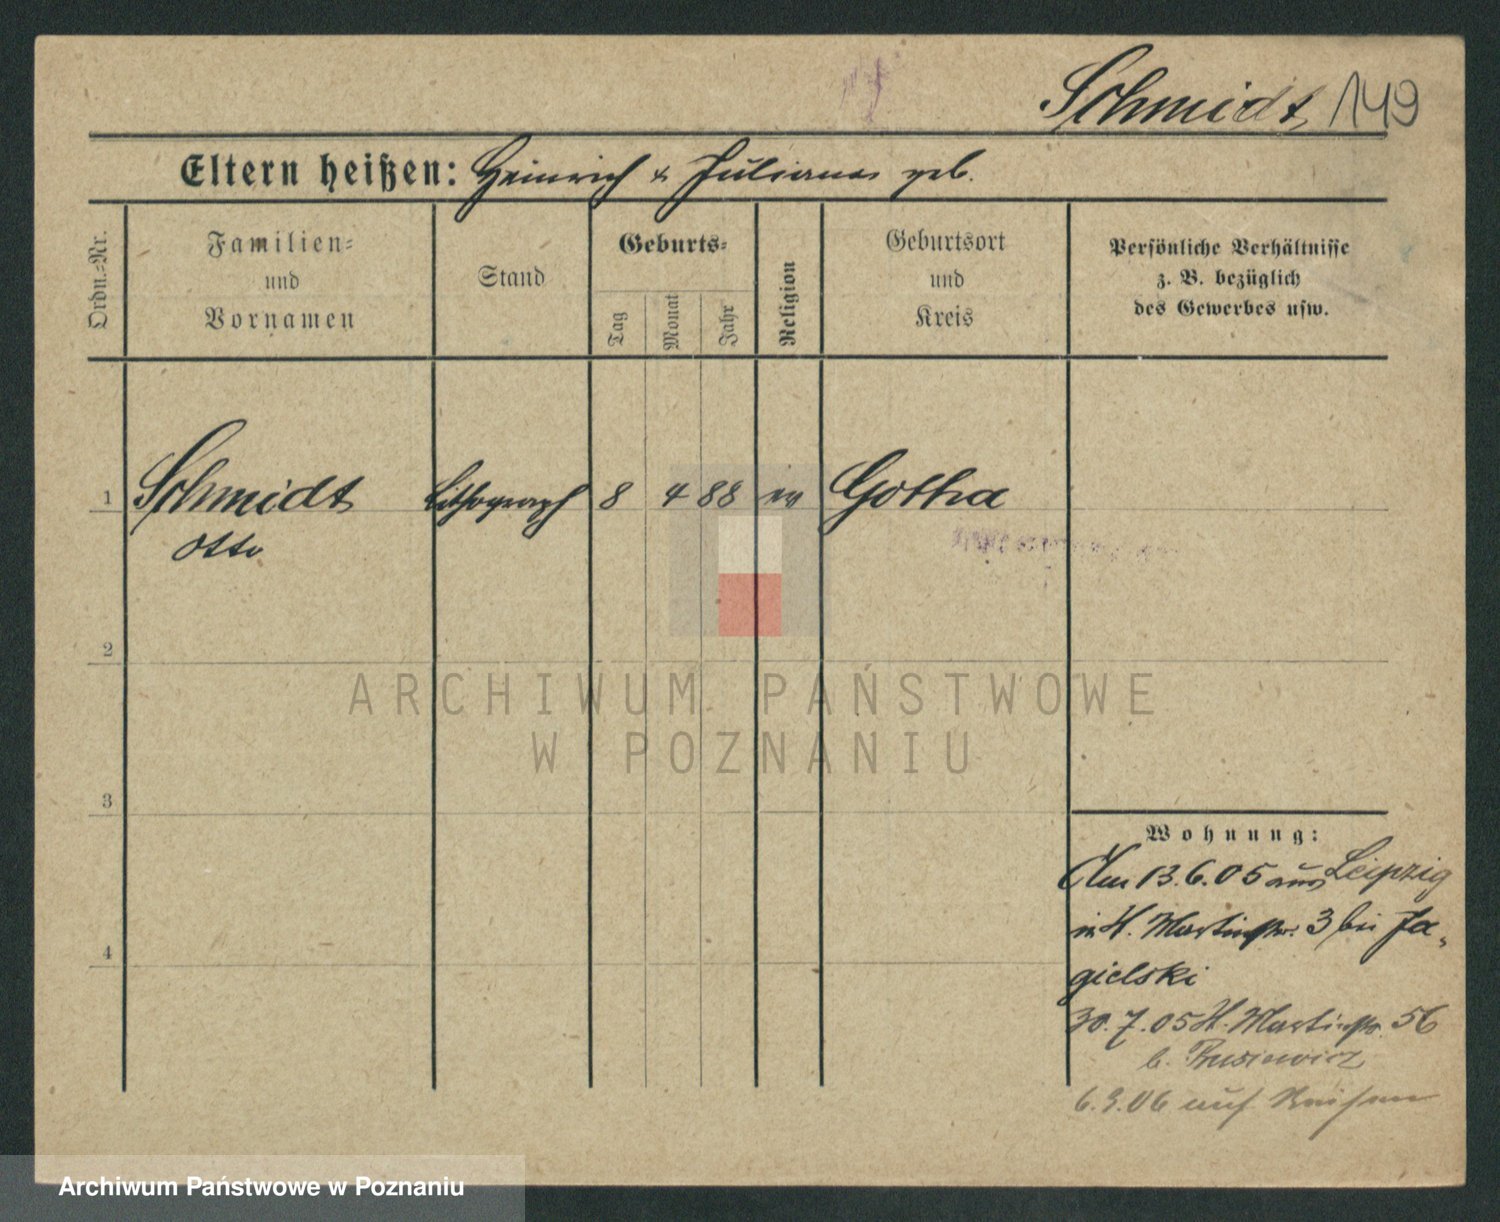 Schmidt 149
Eltern heißen: Heinrich & Juliana geb.
Ordn.-Nr.
Familien-
und
Vornamen
Stand
Geburts-
Tag
Monat
Jahr
Religion
Geburtsort
und
Kreis
Persönliche Verhältnisse
z. B. bezüglich
des Gewerbes usw.
1 Schmidt Lithograph 8 4 88 ev Gotha
Otto
2
ARCHIWUM PAŃSTWOWE
W POZNANIU
3
Wohnung:
Am 13.6.05 aus Leipzig
in H. Martinstr. 3 bei Ja-
4
gielski
30.7.05 H. Martinstr. 56
b.
6.3.06 auf Reisen
Archiwum Państwowe w Poznaniu